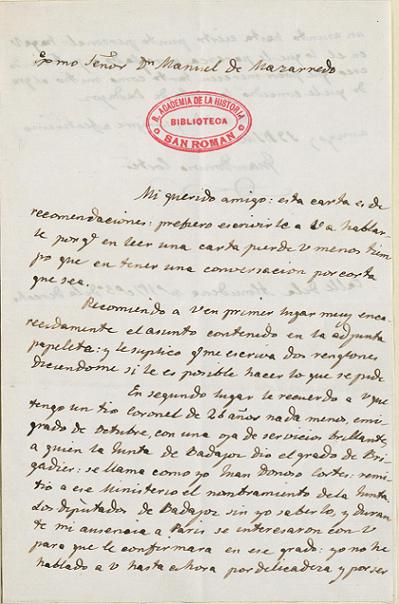 Exmo Señor Dn Manuel de Mazarredo
R. ACADEMIA DE LA HISTORIA
BIBLIOTECA
SAN ROMAN
Mi querido amigo: esta carta es de
recomendaciones: prefiero escrivirle a V a hablar
le por q en leer una carta pierde V menos tiem
po que en tener una conversacion por corta
que sea.
Recomiendo a V en primer lugar muy enca
recidamente el asunto contenido en la adjunta
papeleta: y le suplico q me escriva dos renglones
diciendome si le es posible hacer lo que se pide
En segundo lugar le recuerdo a V que
tengo un tio coronel de 26 años nada menos, emi
grado de Octubre, con una oja de servicios brillante,
a quien la Junta de Badajoz dio el grado de Bri
gadier: se llama como yo Juan Donoso Cortes: remi
tio a ese Ministerio el nombramiento de la Junta
Los Diputados de Badajoz sin yo saberlo, y duran
te mi ausencia a Paris se interesaron con V
para que le confirmara en ese grado: yo no he
hablado a V hasta ahora por delicadeza y por ser